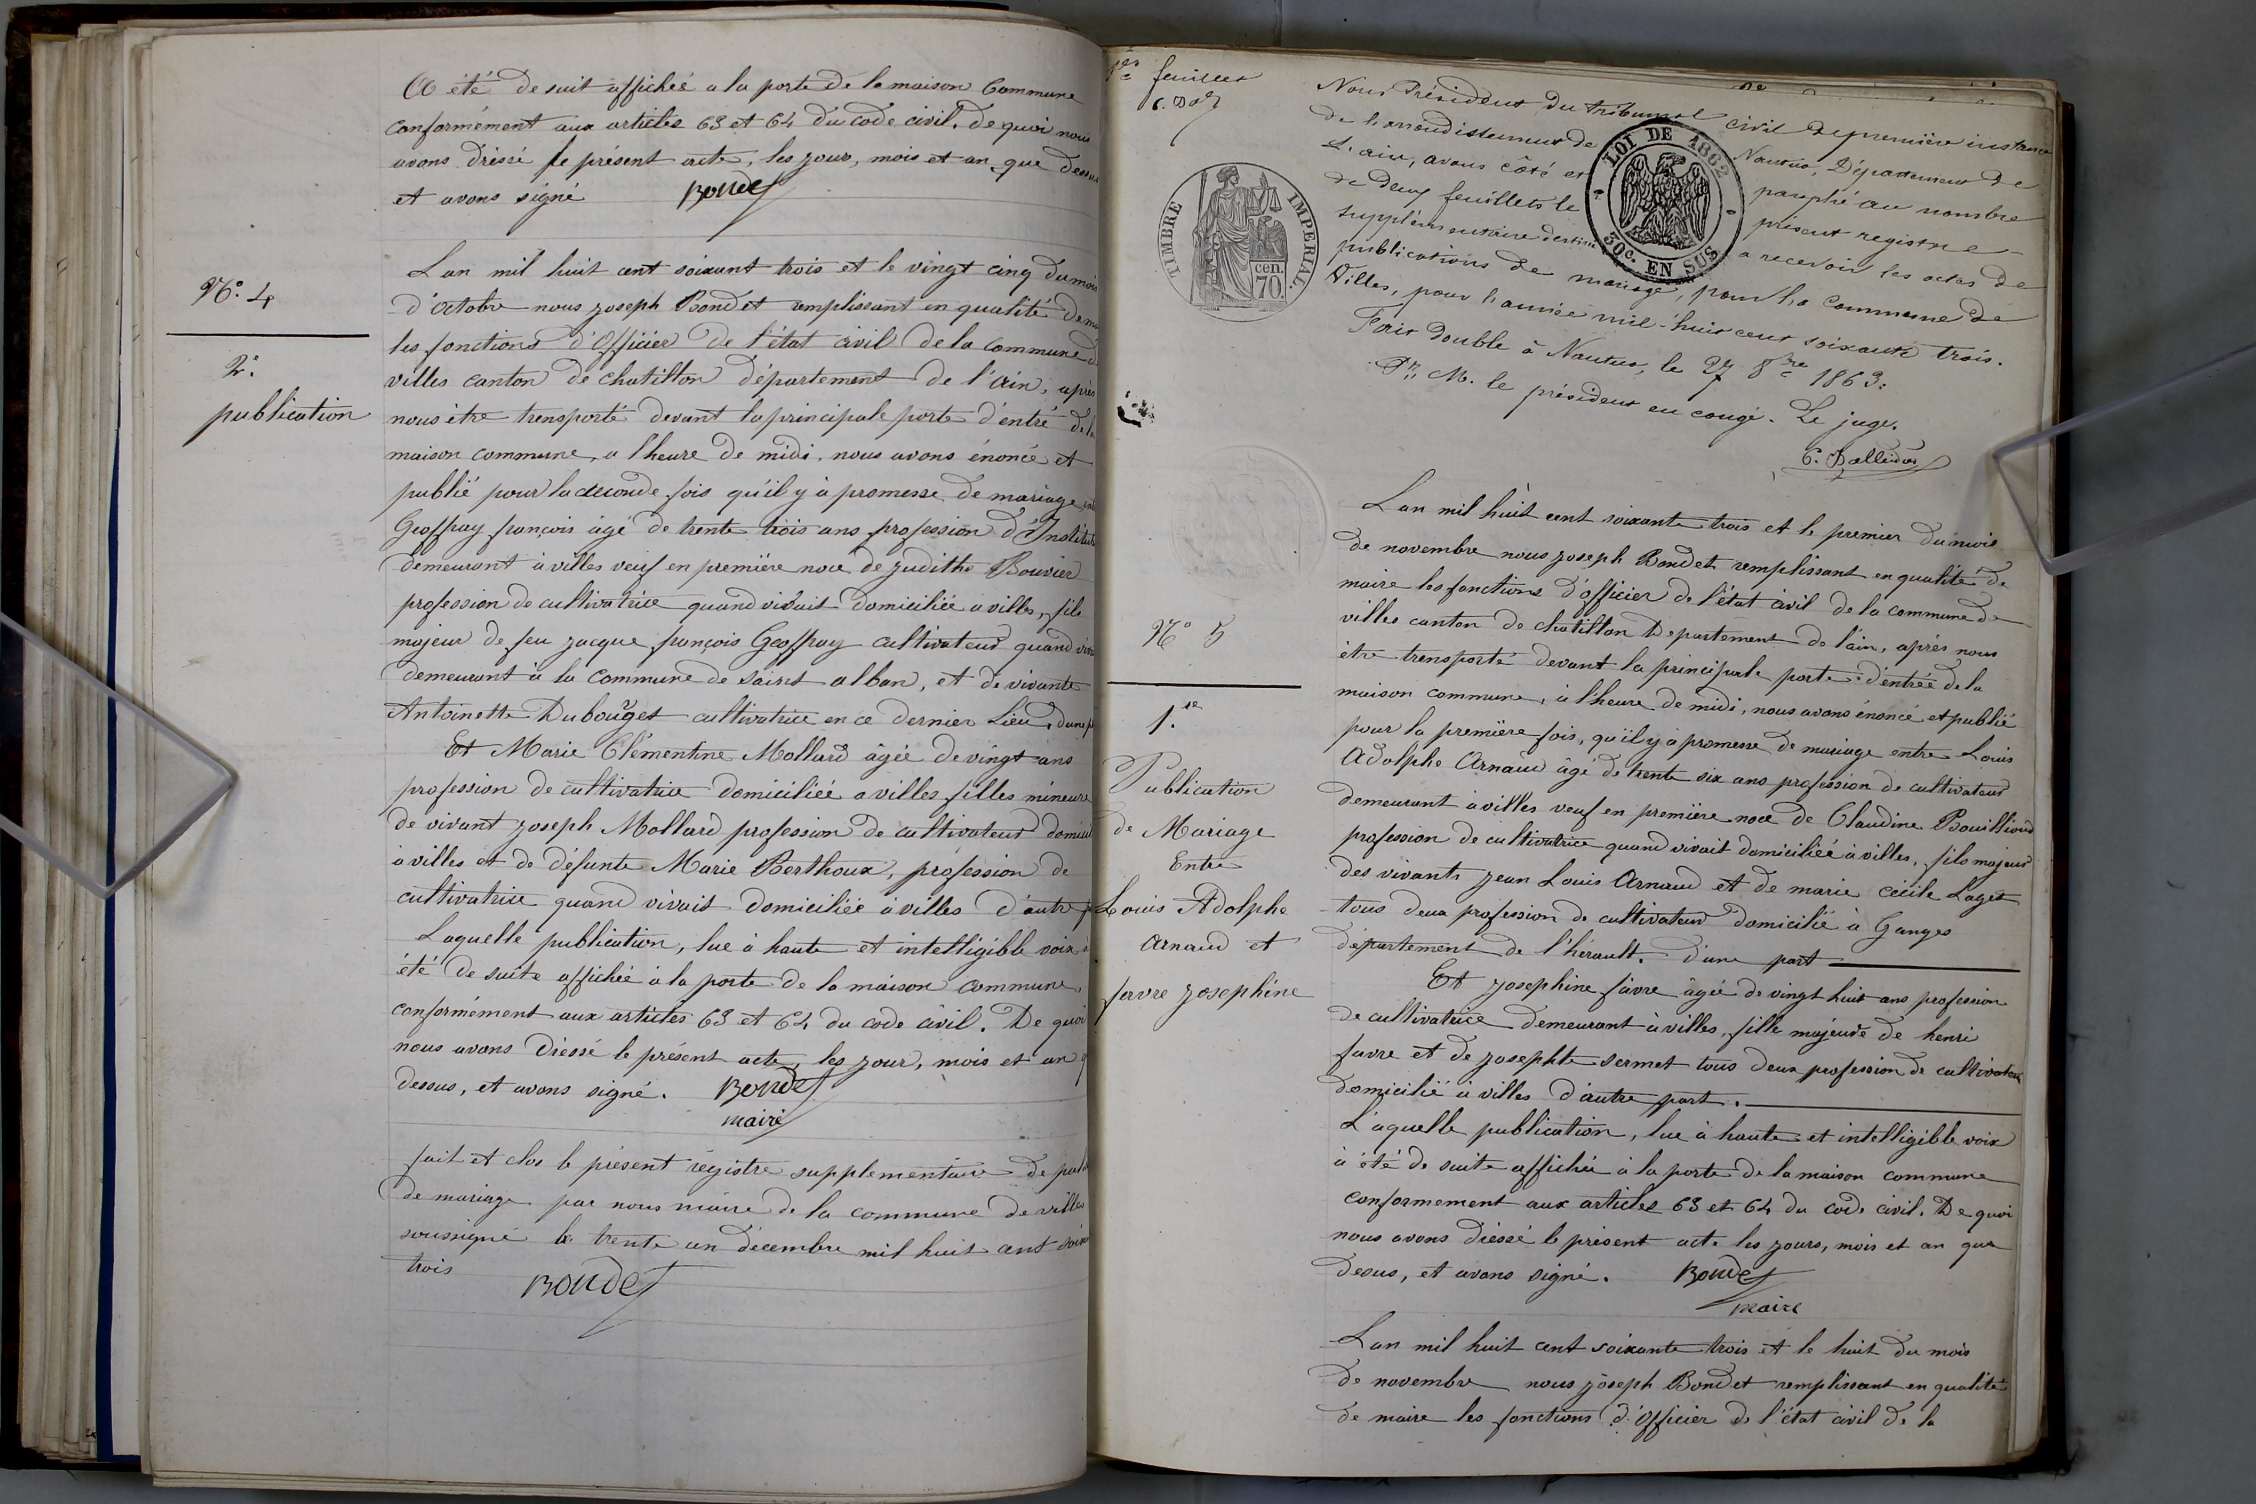 A été de suit affichée a la porte de la maison Commune
conformément aux articles 63 et 64 du code civil. de quoi nous
avons dréssé le présent acte, les jour, mois et an que dessus
et avons signé Bondet
N.º 4
2.e
publication
Lan mil huit cent soixant trois et le vingt cinq du mois
d'octobre nous joseph Bondet remplissant en qualité de
les fonctions d'Officier de l'état civil de la commune
villes canton de chatillon département de l'ain, après
nous être transporté devant la principale porte d'entré de la
maison commune, a l'heure de midi, nous avons énoncé et
publié pour la seconde fois qu'il y à promesse de mariage
Geoffray françois âgé de trente trois ans profession d'Institut
demeurant à villes veuf en première noce de judithe Bouvier
profession de cultivatrice quand vivait domiciliée a villes, fils
majeur de feu jacque françois Geoffray cultivateur quand
demeurant à la commune de saint alban, et de vivante
Antoinette Dubouget cultivatrice en ce dernier Lieu, dune
Et Marie Clémentine Mollard âgée de vingt ans
profession de cultivatrice domiciliée a villes filles mineure
de vivant joseph Mollard profession de cultivateur
à villes et de défunte Marie Berthoux, profession de
cultivatrice quand vivait domiciliée à villes d'autre
Laquelle publication, lue à haute et intelligible voix
été de suite affichée à la porte de la maison commune,
conformément aux articles 63 et 64 du code civil. De quoi
nous avons dressé le présent acte, les jour, mois et an
dessus, et avons signé. Bondet
maire
fait et clos le présent régistre supplementaire de
de mariage par nous maire de la commune de villes
soussigné le trente un décembre mil huit cent
trois
Bondet
feuillet
Nous Président du tribunal civil de première instance
de l'arrondissement de Nantua, Département de
L'ain, avons côté et paraphé au nombre
de deux feuillets le présent registre
supplémentaire destiné a recevoir les actes de
publications de mariage, pour la commune de
Villes, pour l'année mil-huit cent soixante trois.
Fait double à Nantua, le 27 8bre 1863.
Pr M. le président en congé. Le juge.
TIMBRE IMPERIAL
cen.
70
LOI DE 1862
30c. EN SUS
Nº 5
1.re
Publication
de Mariage
Entre
Louis Adolphe
Arnaud et
favre josephine
Lan mil huit cent soixante trois et le premier du mois
de novembre nous joseph Bondet remplissant en qualité de
maire les fonctions d'officier de l'état civil de la commune de
villes canton de chatillon Departement de l'ain, après nous
être transporté devant la principale porte d'entrée de la
maison commune, à l'heure de midi, nous avons énoncé et publié
pour la première fois, qu'il y à promesse de mariage entre Louis
Adolphe Arnaud âgé de trente six ans profession de cultivateur
demeurant à villes veuf en première noce de Claudine Bouilliond
profession de cultivatrice quand vivait domiciliée à villes, fils majeur
des vivants jean Louis Arnaud et de marie cécile Laget
tous deux profession de cultivateur domicilié à Ganges
département de l'hérault. d'une part
Et josephine favre âgée de vingt huit ans profession
de cultivatrice demeurant à villes, fille majeure de henri
favre et de josephte sermet tous deux profession de cultivateur
domicilié à villes d'autre part.
Laquelle publication, lue à haute et intelligible voix
à été de suite affichée à la porte de la maison commune
conformement aux articles 63 et 64 du code civil. De quoi
nous avons dréssé le présent acte les jours, mois et an que
desus, et avons signé. Bondet
maire
Lan mil huit cent soixante trois et le huit du mois
de novembre nous joseph Bondet remplissant en qualité
de maire les fonctions d'Officier de l'état civil de la